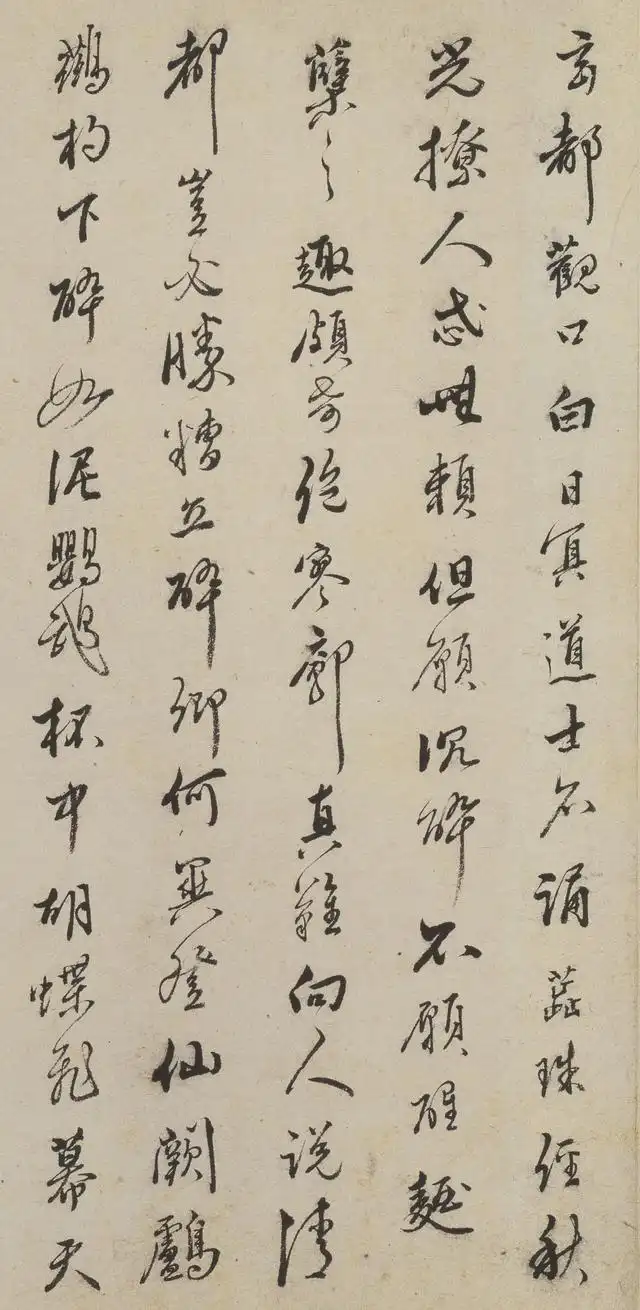 玄都觀口白日冥道士不誦蕊珠經秋
光撩人感無賴但願沉醉不願醒麴
糵之趣頗奇絕寥廓真難向人說清
都豈必勝糟丘醉鄉何異登仙闕鸕
鶿杓下醉如泥鸚鵡杯中胡蝶飛幕天